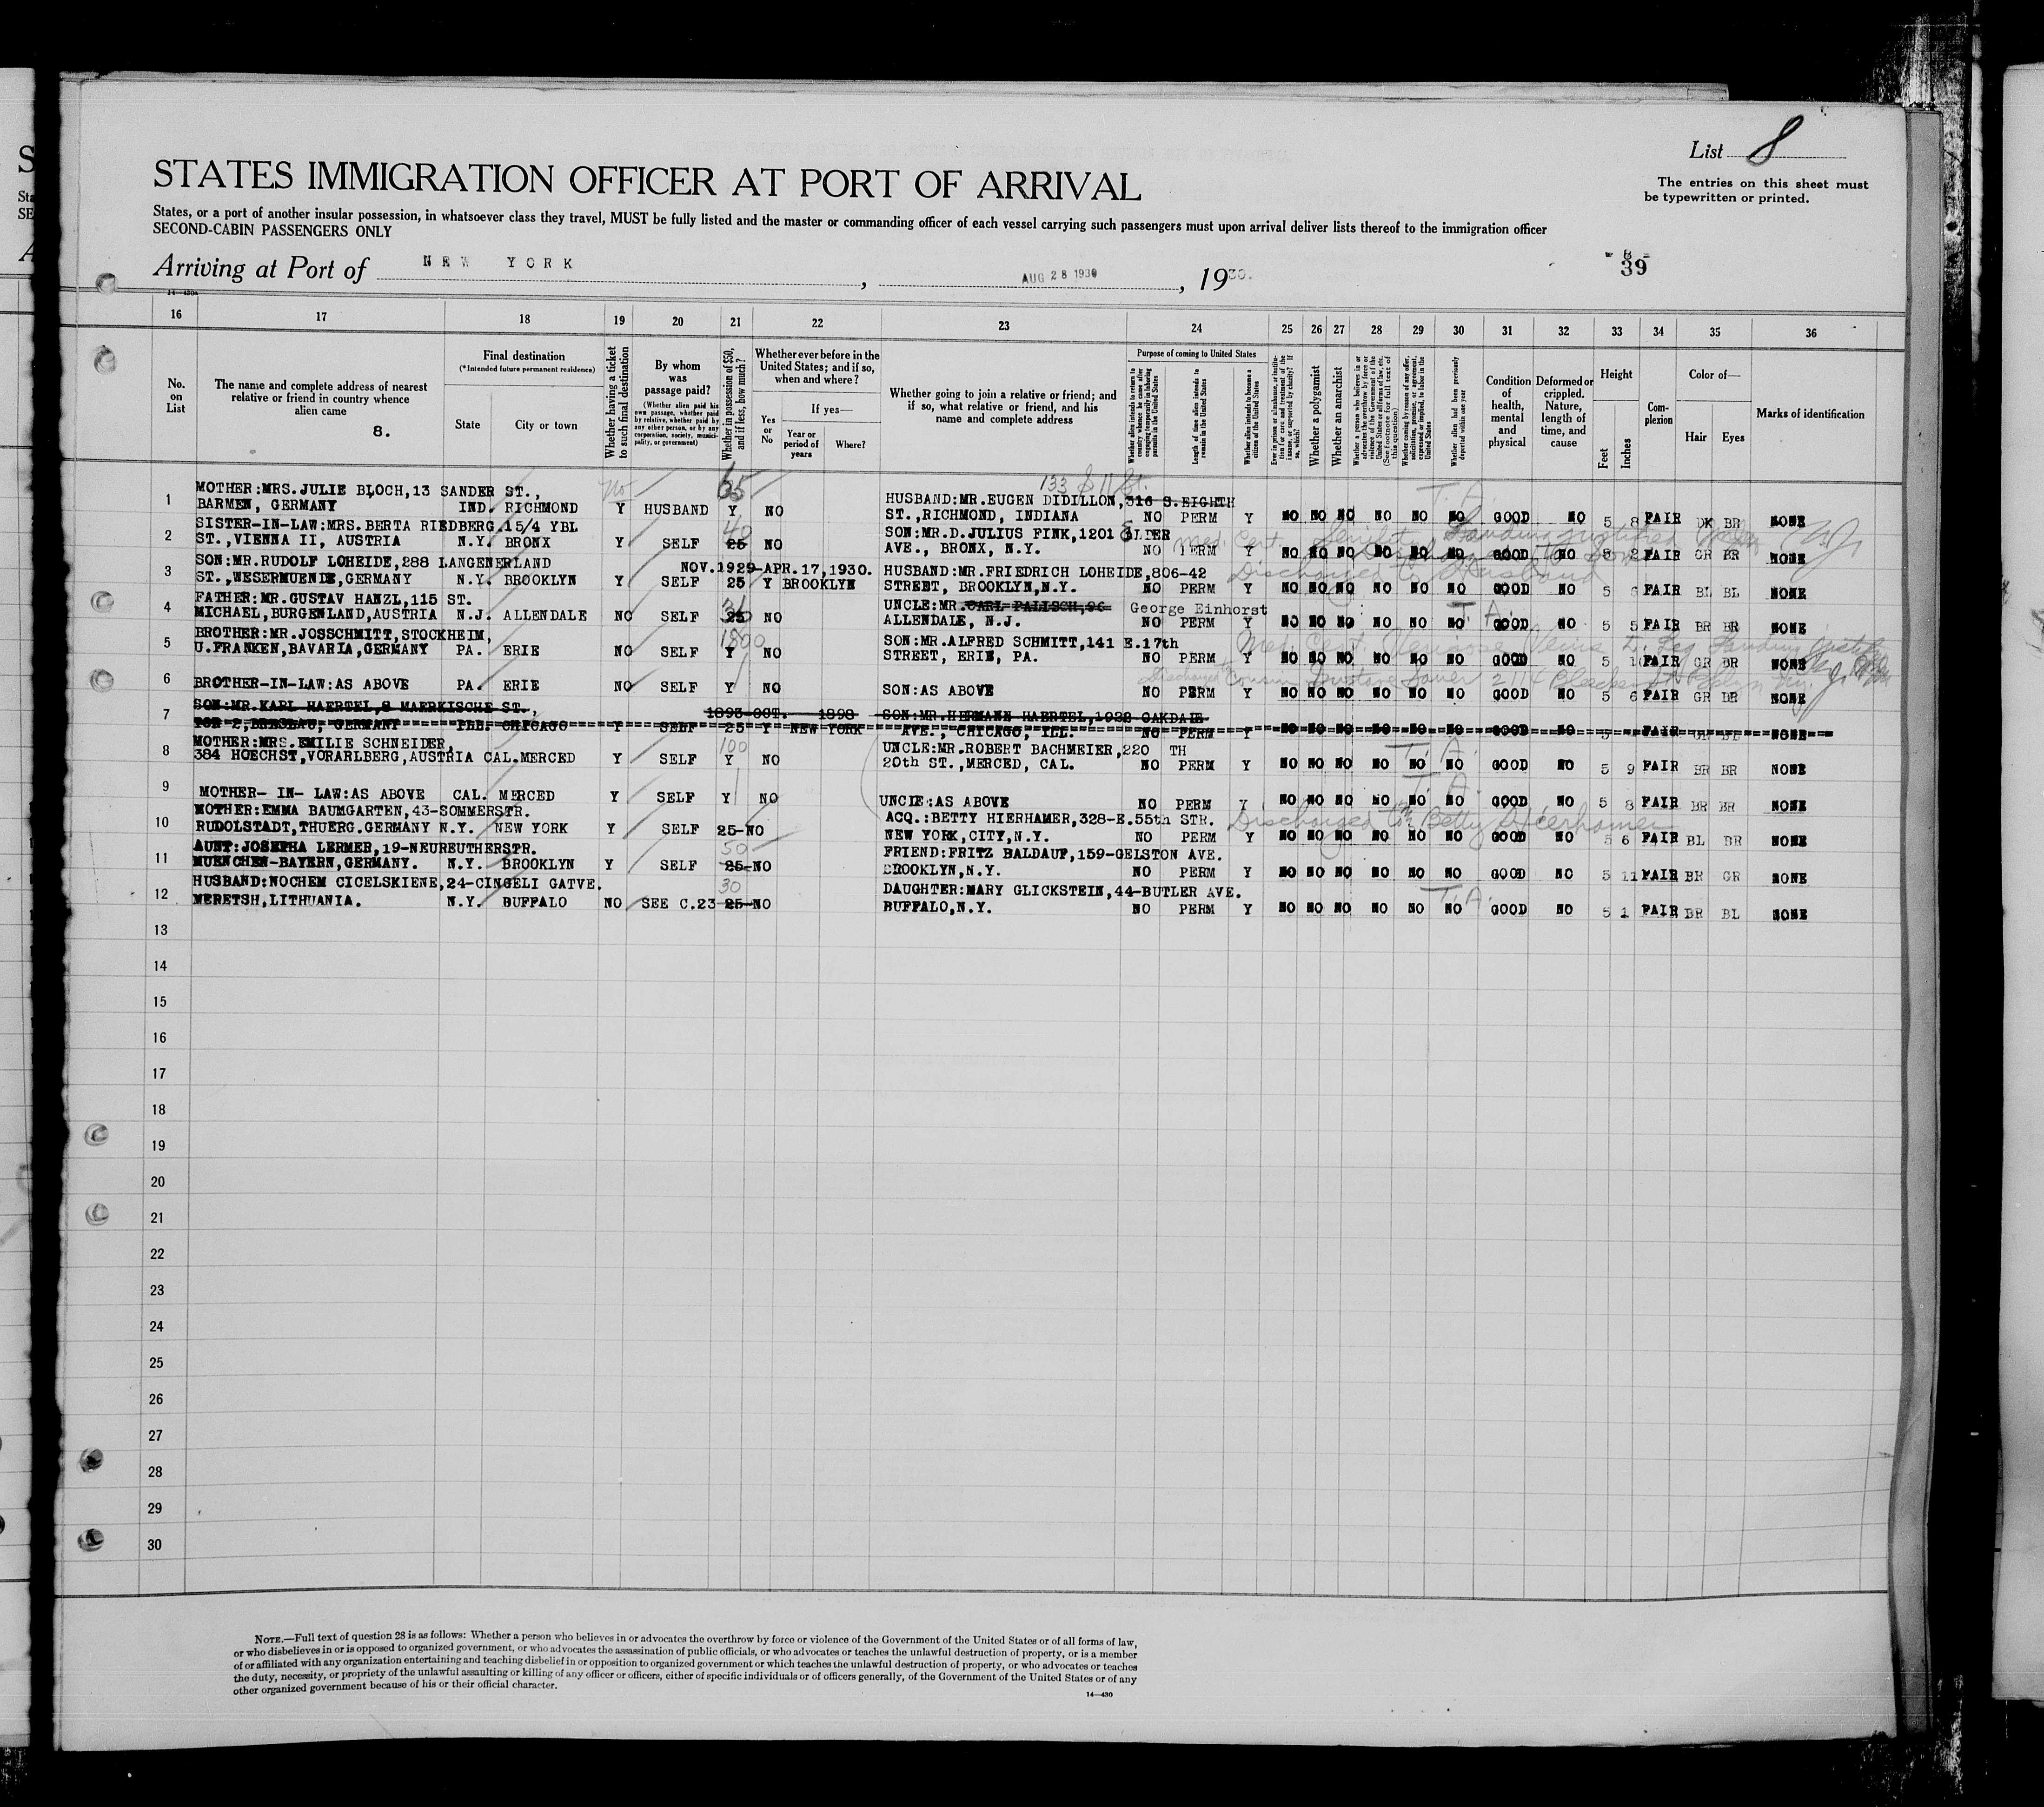 List 8
STATES IMMIGRATION OFFICER AT PORT OF ARRIVAL
The entries on this sheet must
be typewritten or printed.
States, or a port of another insular possession, in whatsoever class they travel, MUST be fully listed and the master or commanding officer of each vessel carrying such passengers must upon arrival deliver lists thereof to the immigration officer
SECOND-CABIN PASSENGERS ONLY
Arriving at Port of NEW YORK, AUG 28 1930, 1930.
39
16 17 18 19 20 21 22 23 24 25 26 27 28 29 30 31 32 33 34 35 36
No. on List
The name and complete address of nearest relative or friend in country whence alien came
8.
Final destination
(*Intended future permanent residence)
State City or town
Whether having a ticket to such final destination
By whom was passage paid?
(Whether alien paid his own passage, whether paid by relative, whether paid by any other person, or by any corporation, society, municipality, or government)
Whether in possession of $50, and if less, how much?
Whether ever before in the United States; and if so, when and where?
Yes or No
If yes—
Year or period of years
Where?
Whether going to join a relative or friend; and if so, what relative or friend, and his name and complete address
Purpose of coming to United States
Length of time alien intends to remain in the United States
Whether alien intends to become a citizen of the United States
Whether a polygamist
Whether an anarchist
Condition of health, mental and physical
Deformed or crippled. Nature, length of time, and cause
Height
Feet Inches
Complexion
Color of—
Hair Eyes
Marks of identification
133 S 11 St.
1 MOTHER:MRS.JULIE BLOCH,13 SANDER ST., HUSBAND:MR.EUGEN DIDILLON,316 S.EIGHTH
BARMEN, GERMANY IND. RICHMOND Y HUSBAND Y NO ST.,RICHMOND, INDIANA NO PERM Y NO NO NO NO NO NO GOOD NO 5 8 FAIR DK BR NONE
2 SISTER-IN-LAW:MRS.BERTA RIEDBERG.15/4 YBL SON:MR.D.JULIUS FINK,1201
ST.,VIENNA II, AUSTRIA N.Y. BRONX Y SELF 25 NO AVE., BRONX, N.Y. NO PERM Y NO NO NO NO NO NO GOOD NO 5 2 FAIR GR BR NONE
3 SON:MR.RUDOLF LOHEIDE,288 LANGENERLAND NOV.1929-APR.17,1930. HUSBAND:MR.FRIEDRICH LOHEIDE,806-42
ST.,WESERMUENDE,GERMANY N.Y. BROOKLYN Y SELF 25 Y BROOKLYN STREET, BROOKLYN,N.Y. NO PERM Y NO NO NO NO NO NO GOOD NO 5 FAIR BL BL NONE
4 FATHER:MR.GUSTAV HANZL,115 ST. UNCLE:MR. George Einhorst
MICHAEL,BURGENLAND,AUSTRIA N.J. ALLENDALE NO SELF 25 NO ALLENDALE, N.J. NO PERM Y NO NO NO NO NO NO GOOD NO 5 5 FAIR BR BR NONE
5 BROTHER:MR.JOSSCHMITT,STOCKHEIM, SON:MR.ALFRED SCHMITT,141 E.17th
U.FRANKEN,BAVARIA,GERMANY PA. ERIE NO SELF Y NO STREET, ERIE, PA. NO PERM Y NO NO NO NO NO NO GOOD NO 5 1 FAIR GR BR NONE
6 BROTHER-IN-LAW:AS ABOVE PA. ERIE NO SELF Y NO SON:AS ABOVE NO PERM Y NO NO NO NO NO NO GOOD NO 5 6 FAIR GR BR NONE
7 SON:MR.KARL HAERTEL,8 MAERKISCHE ST., 1893-OCT. 1898 SON:MR.HERMANN HAERTEL,1032 OAKDALE
TOR 2,BRESLAU, GERMANY ILL. CHICAGO Y SELF 25 Y NEW YORK AVE., CHICAGO, ILL. NO PERM Y NO NO NO NO NO NO GOOD NO 5 FAIR NONE
8 MOTHER:MRS.EMILIE SCHNEIDER, 100 UNCLE:MR.ROBERT BACHMEIER,220 TH
384 HOECHST,VORARLBERG,AUSTRIA CAL.MERCED Y SELF Y NO 20th ST.,MERCED, CAL. NO PERM Y NO NO NO NO NO NO GOOD NO 5 9 FAIR BR BR NONE
9 MOTHER- IN- LAW:AS ABOVE CAL. MERCED Y SELF Y NO UNCLE:AS ABOVE NO PERM Y NO NO NO NO NO NO GOOD NO 5 3 FAIR BR BR NONE
10 MOTHER:EMMA BAUMGARTEN,43-SOMMERSTR. ACQ.:BETTY HIERHAMER,328-E.55th STR. Discharged to Betty Hierhamer
RUDOLSTADT,THUERG.GERMANY N.Y. NEW YORK Y SELF 25-NO NEW YORK,CITY,N.Y. NO PERM Y NO NO NO NO NO NO GOOD NO 5 6 FAIR BL BR NONE
11 AUNT:JOSEPHA LERMER,19-NEUREUTHERSTR. 50 FRIEND:FRITZ BALDAUF,159-GELSTON AVE.
MUENCHEN-BAYERN,GERMANY. N.Y. BROOKLYN Y SELF 25-NO BROOKLYN,N.Y. NO PERM Y NO NO NO NO NO NO GOOD NO 5 11 FAIR BR GR NONE
12 HUSBAND:NOCHEM CICELSKIENE,24-CINGELI GATVE. 30 DAUGHTER:MARY GLICKSTEIN,44-BUTLER AVE. T.A.
MERETSH,LITHUANIA. N.Y. BUFFALO NO SEE C.23 25-NO BUFFALO,N.Y. NO PERM Y NO NO NO NO NO NO GOOD NO 5 1 FAIR BR BL NONE
13
14
15
16
17
18
19
20
21
22
23
24
25
26
27
28
29
30
NOTE.—Full text of question 28 is as follows: Whether a person who believes in or advocates the overthrow by force or violence of the Government of the United States or of all forms of law,
or who disbelieves in or is opposed to organized government, or who advocates the assassination of public officials, or who advocates or teaches the unlawful destruction of property, or is a member
of or affiliated with any organization entertaining and teaching disbelief in or opposition to organized government or which teaches the unlawful destruction of property, or who advocates or teaches
the duty, necessity, or propriety of the unlawful assaulting or killing of any officer or officers, either of specific individuals or of officers generally, of the Government of the United States or of any
other organized government because of his or their official character.
14—430